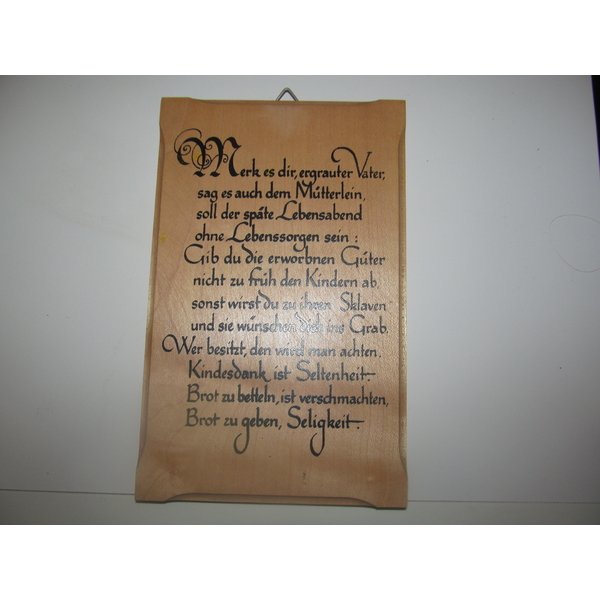 Merk es dir, ergrauter Vater,
sag es auch dem Mütterlein,
soll der späte Lebensabend
ohne Lebenssorgen sein:
Gib du die erworbnen Güter
nicht zu früh den Kindern ab,
sonst wirst du zu ihren Sklaven
und sie wünschen dich ins Grab.
Wer besitzt, den wird man achten.
Kindesdank ist Seltenheit.
Brot zu betteln, ist verschmachten,
Brot zu geben, Seligkeit.